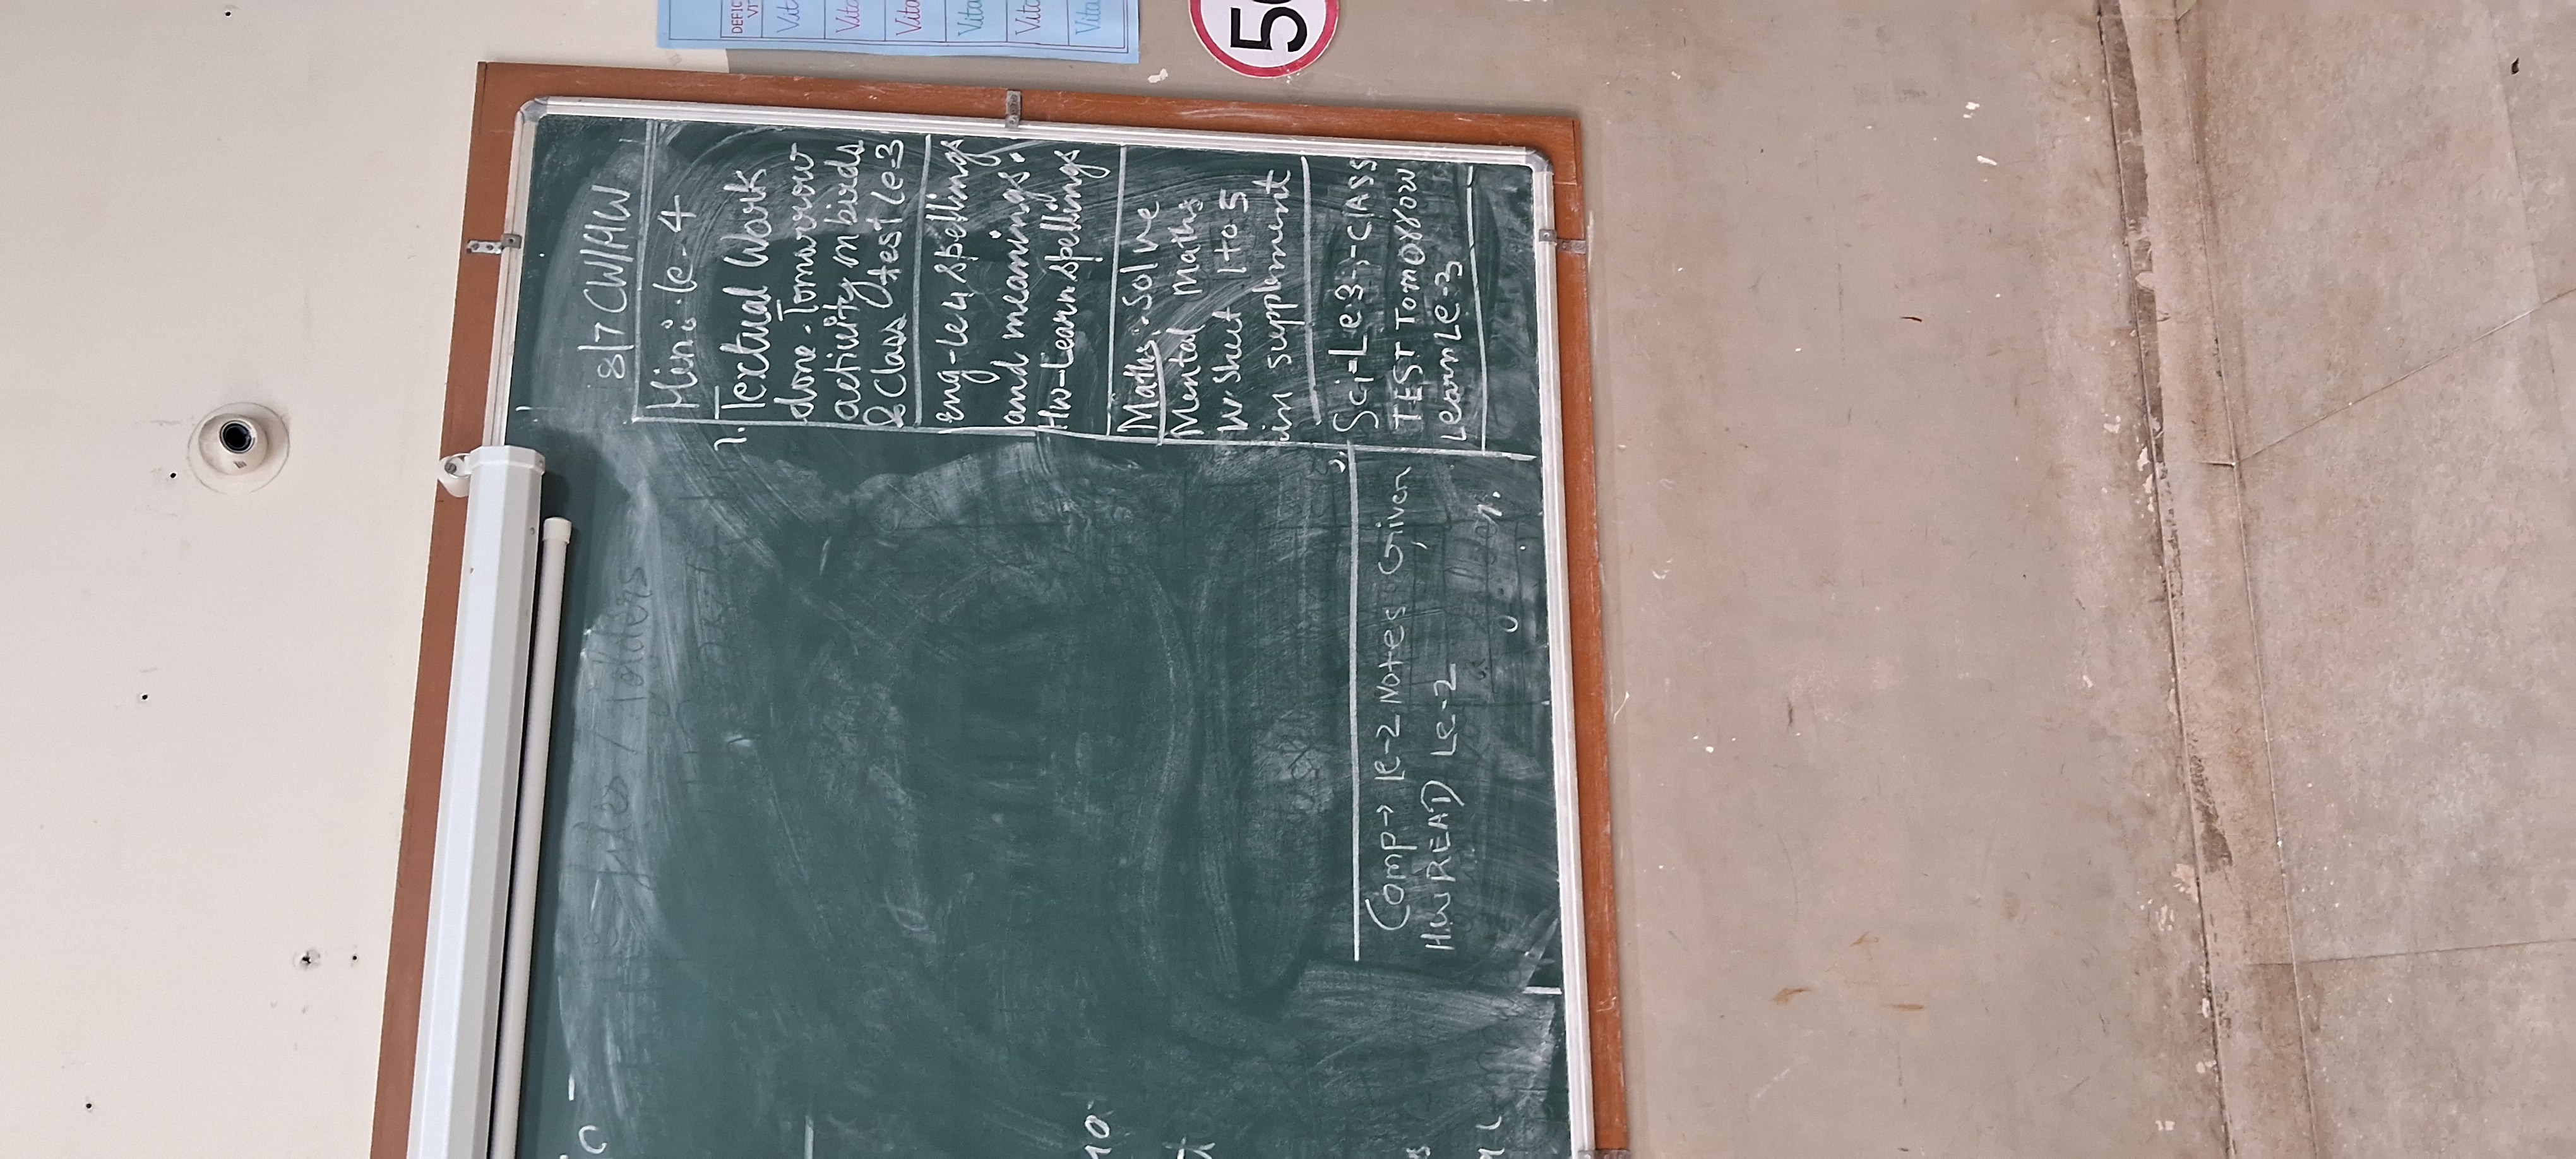 8/7 CW/HW
Hin: le-4
1. Textual Work
done. Tomorrow
activity on birds
& Class test le-3
eng-Le4 spellings
and meanings.
Hw-Learn spellings
Maths:- Solve
Mental Maths
W. Sheet 1 to 5
in supplement
Sci-Le3-:-CLASS
TEST Tomorrow
Learn Le-3
Comp→ le-2 Notes Given
H.W READ Le-2
folders
DEFIC
VIT
Vit
Vita
Vita
Vita
Vita
Vita
5